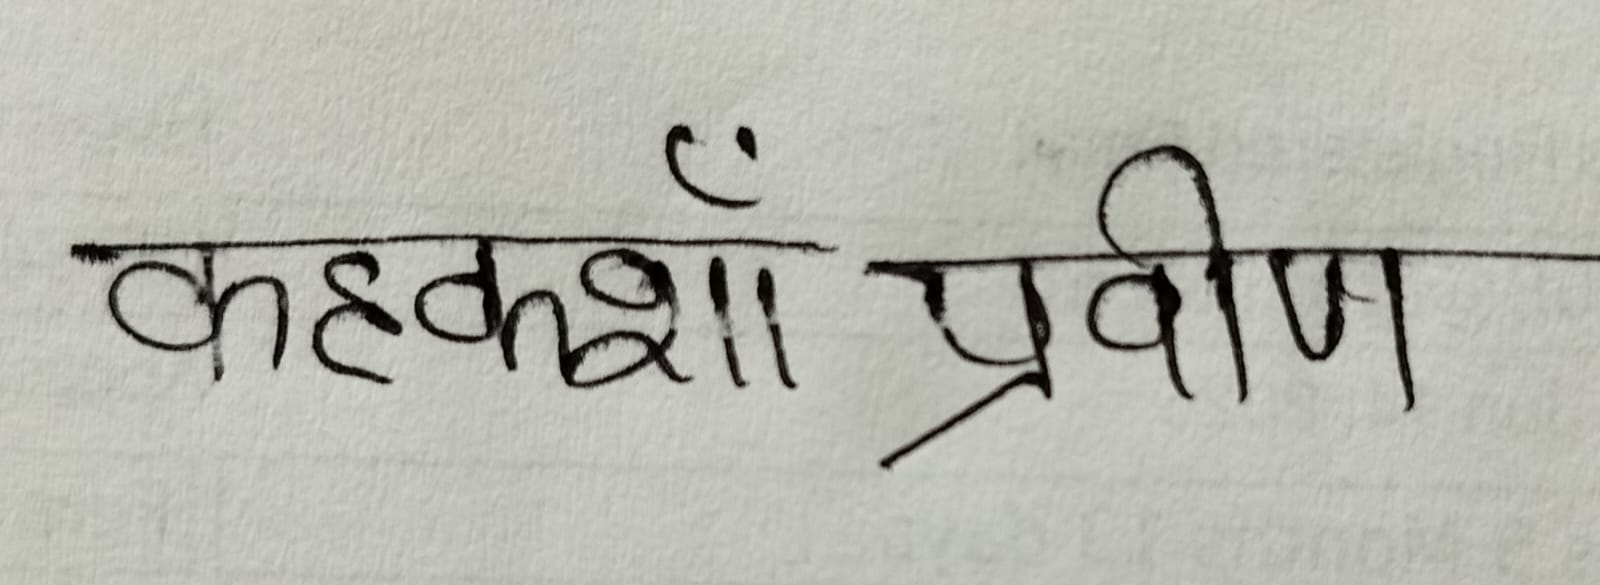 कहकशाँ प्रवीण